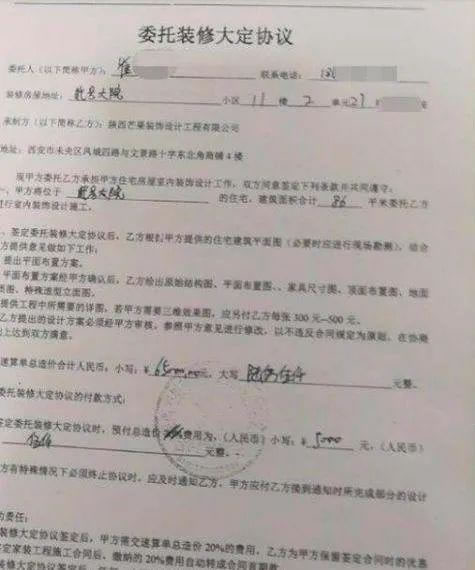 委托装修大定协议
委托人(以下简称甲方): 崔 联系电话:
装修房屋地址: 大院 小区 11 楼 2 单元 21
承制方(以下简称乙方): 陕西芒果装饰设计工程有限公司
地址: 西安市未央区凤城四路与文景路十字东北角商铺4楼
现甲方委托乙方承担甲方住宅房屋室内装饰设计工作, 双方同意签定下列条款并共同遵守:
一、甲方将位于 大院 的住宅, 建筑面积合计 86 平米委托乙方
行室内装饰设计施工。
、签定委托装修大定协议后, 乙方根据甲方提供的住宅建筑平面图(必要时应进行现场勘测), 结合
方提供意见做如下工作:
提出平面布置方案。
平面布置方案经甲方确认后, 乙方给出原始结构图、平面布置图、、家具尺寸图、顶面布置图、地面
置图、特殊造型立面图。
提供工程中所需要的详图, 若甲方需要三维效果图, 应另付乙方每张 300 元—500 元。
乙方提出的设计方案必须经甲方审核, 参照甲方意见进行修改, 以不违反合同规定为原则, 在协商
出上达到双方满意。
速算单总造价合计人民币, 小写: ¥ 65000.00元, 大写 陆万伍仟 元整。
委托装修大定协议的付款方式:
签定委托装修大定协议时, 预付总造价 费用为, (人民币) 小写: ¥ 5000 元, (人民币)
伍仟 元整。
方有特殊情况下必须终止协议时, 应及时通知乙方, 甲方应付乙方接到通知时所完成部分的设计
的责任:
装修大定协议签定后, 甲方需交速算单总造价 20%的费用, 乙方为甲方保留签定合同时的优惠
签定家装工程施工合同后, 缴纳的 20%费用自动转成合同首期款